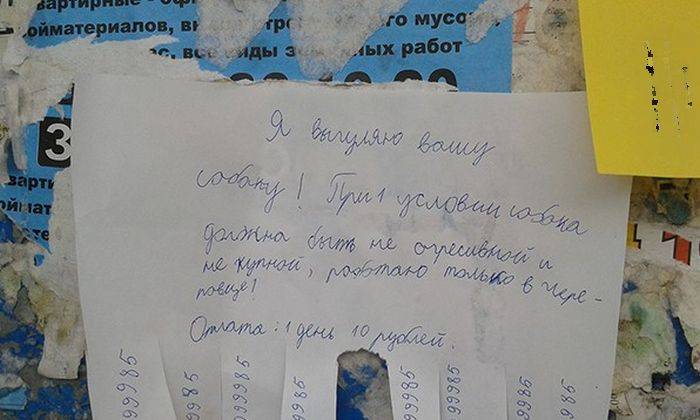 вартирные
ойматериалов,
мусо
все виды работ
З
варти
оймат
Я выгуляю вашу
собаку! При 1 условии собака
должна быть не огресивной и
не купной, работаю только в Чере-
повце!
Оплата: 1 день 10 рублей.
99985
99985
99985
99985
99985
99985